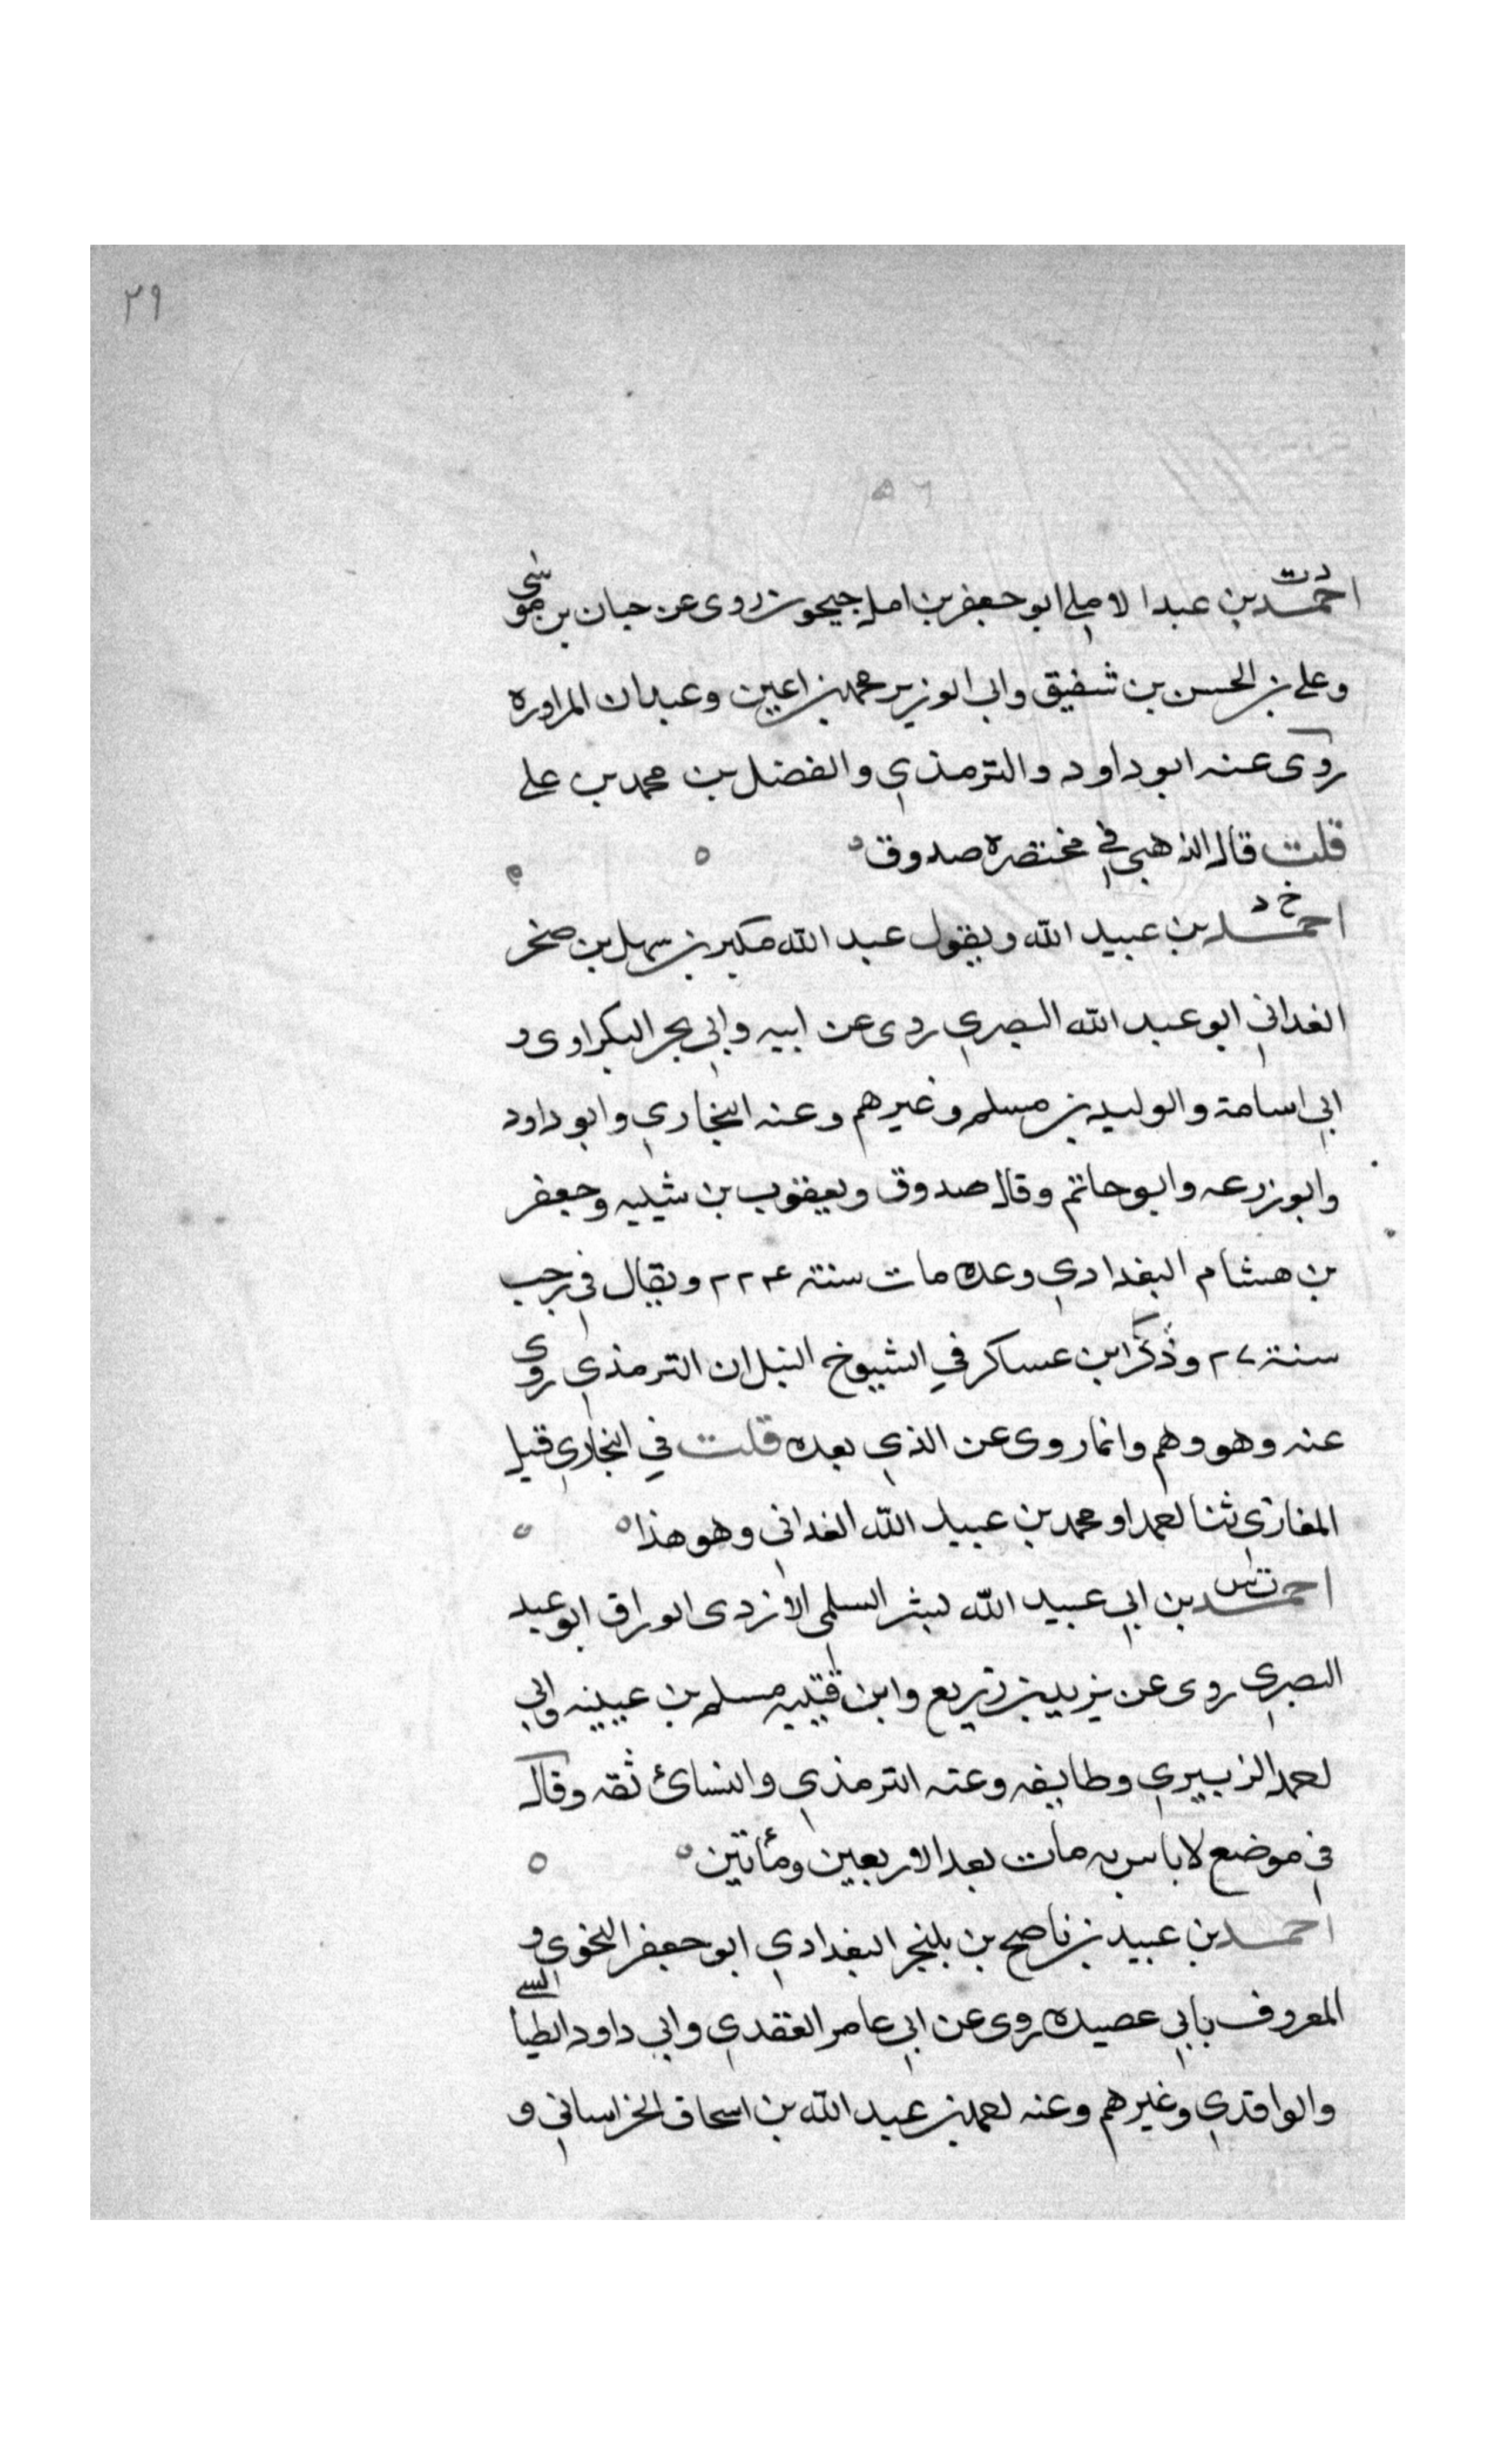 ٣٩
٥٦
د ت
احمد بن عبدا الاملي ابو جعفر بن امل جيحون روى عن حبان بن موسى
وعلي بن الحسن بن شقيق وابي الوزير محمد بن اعين وعبدان المراوره
روى عنه ابو داود والترمذي والفضل بن محمد بن علي
قلت قال الذهبي في مختصره صدوق ه ه ه
خ د
احمد بن عبيد الله ويقول عبد الله مكبر بن سهل بن صخر
الغداني ابو عبد الله البصري روى عن ابيه وابي بحر البكراوى و
ابي اسامة والوليد بن مسلم وغيرهم وعنه البخاري وابو داود
وابو زرعه وابو حاتم وقال صدوق ويعقوب بن شيبه وجعفر
بن هشام البغدادي وعده مات سنة ٢٢٤ ويقال في رجب
سنة ٢٧ وذكر ابن عساكر في الشيوخ النبل ان الترمذي روى
عنه وهو وهم وانما روى عن الذي بعده قلت في البخاري قبل
المغازي ثنا احمد او محمد بن عبيد الله الغداني وهو هذا ه ه
ت س
احمد بن ابي عبيد الله بشر السلمى الازدى الوراق ابو عبد
البصري روى عن يزيد بن زريع وابن قتيبه مسلم بن عيينه وابي
احمد الزبيري وطايفه وعنه الترمذي والنسائ ثقه وقال
في موضع لا باس به مات بعد الاربعين ومأتين ه ه
احمد بن عبيد بن ناصح بن بلنجر البغدادي ابو جعفر النحوي و
المعروف بابي عصيده روى عن ابي عامر العقدي وابي داود الطيالسي
والواقدي وغيرهم وعنه احمد بن عبد الله بن اسحاق الخراساني و